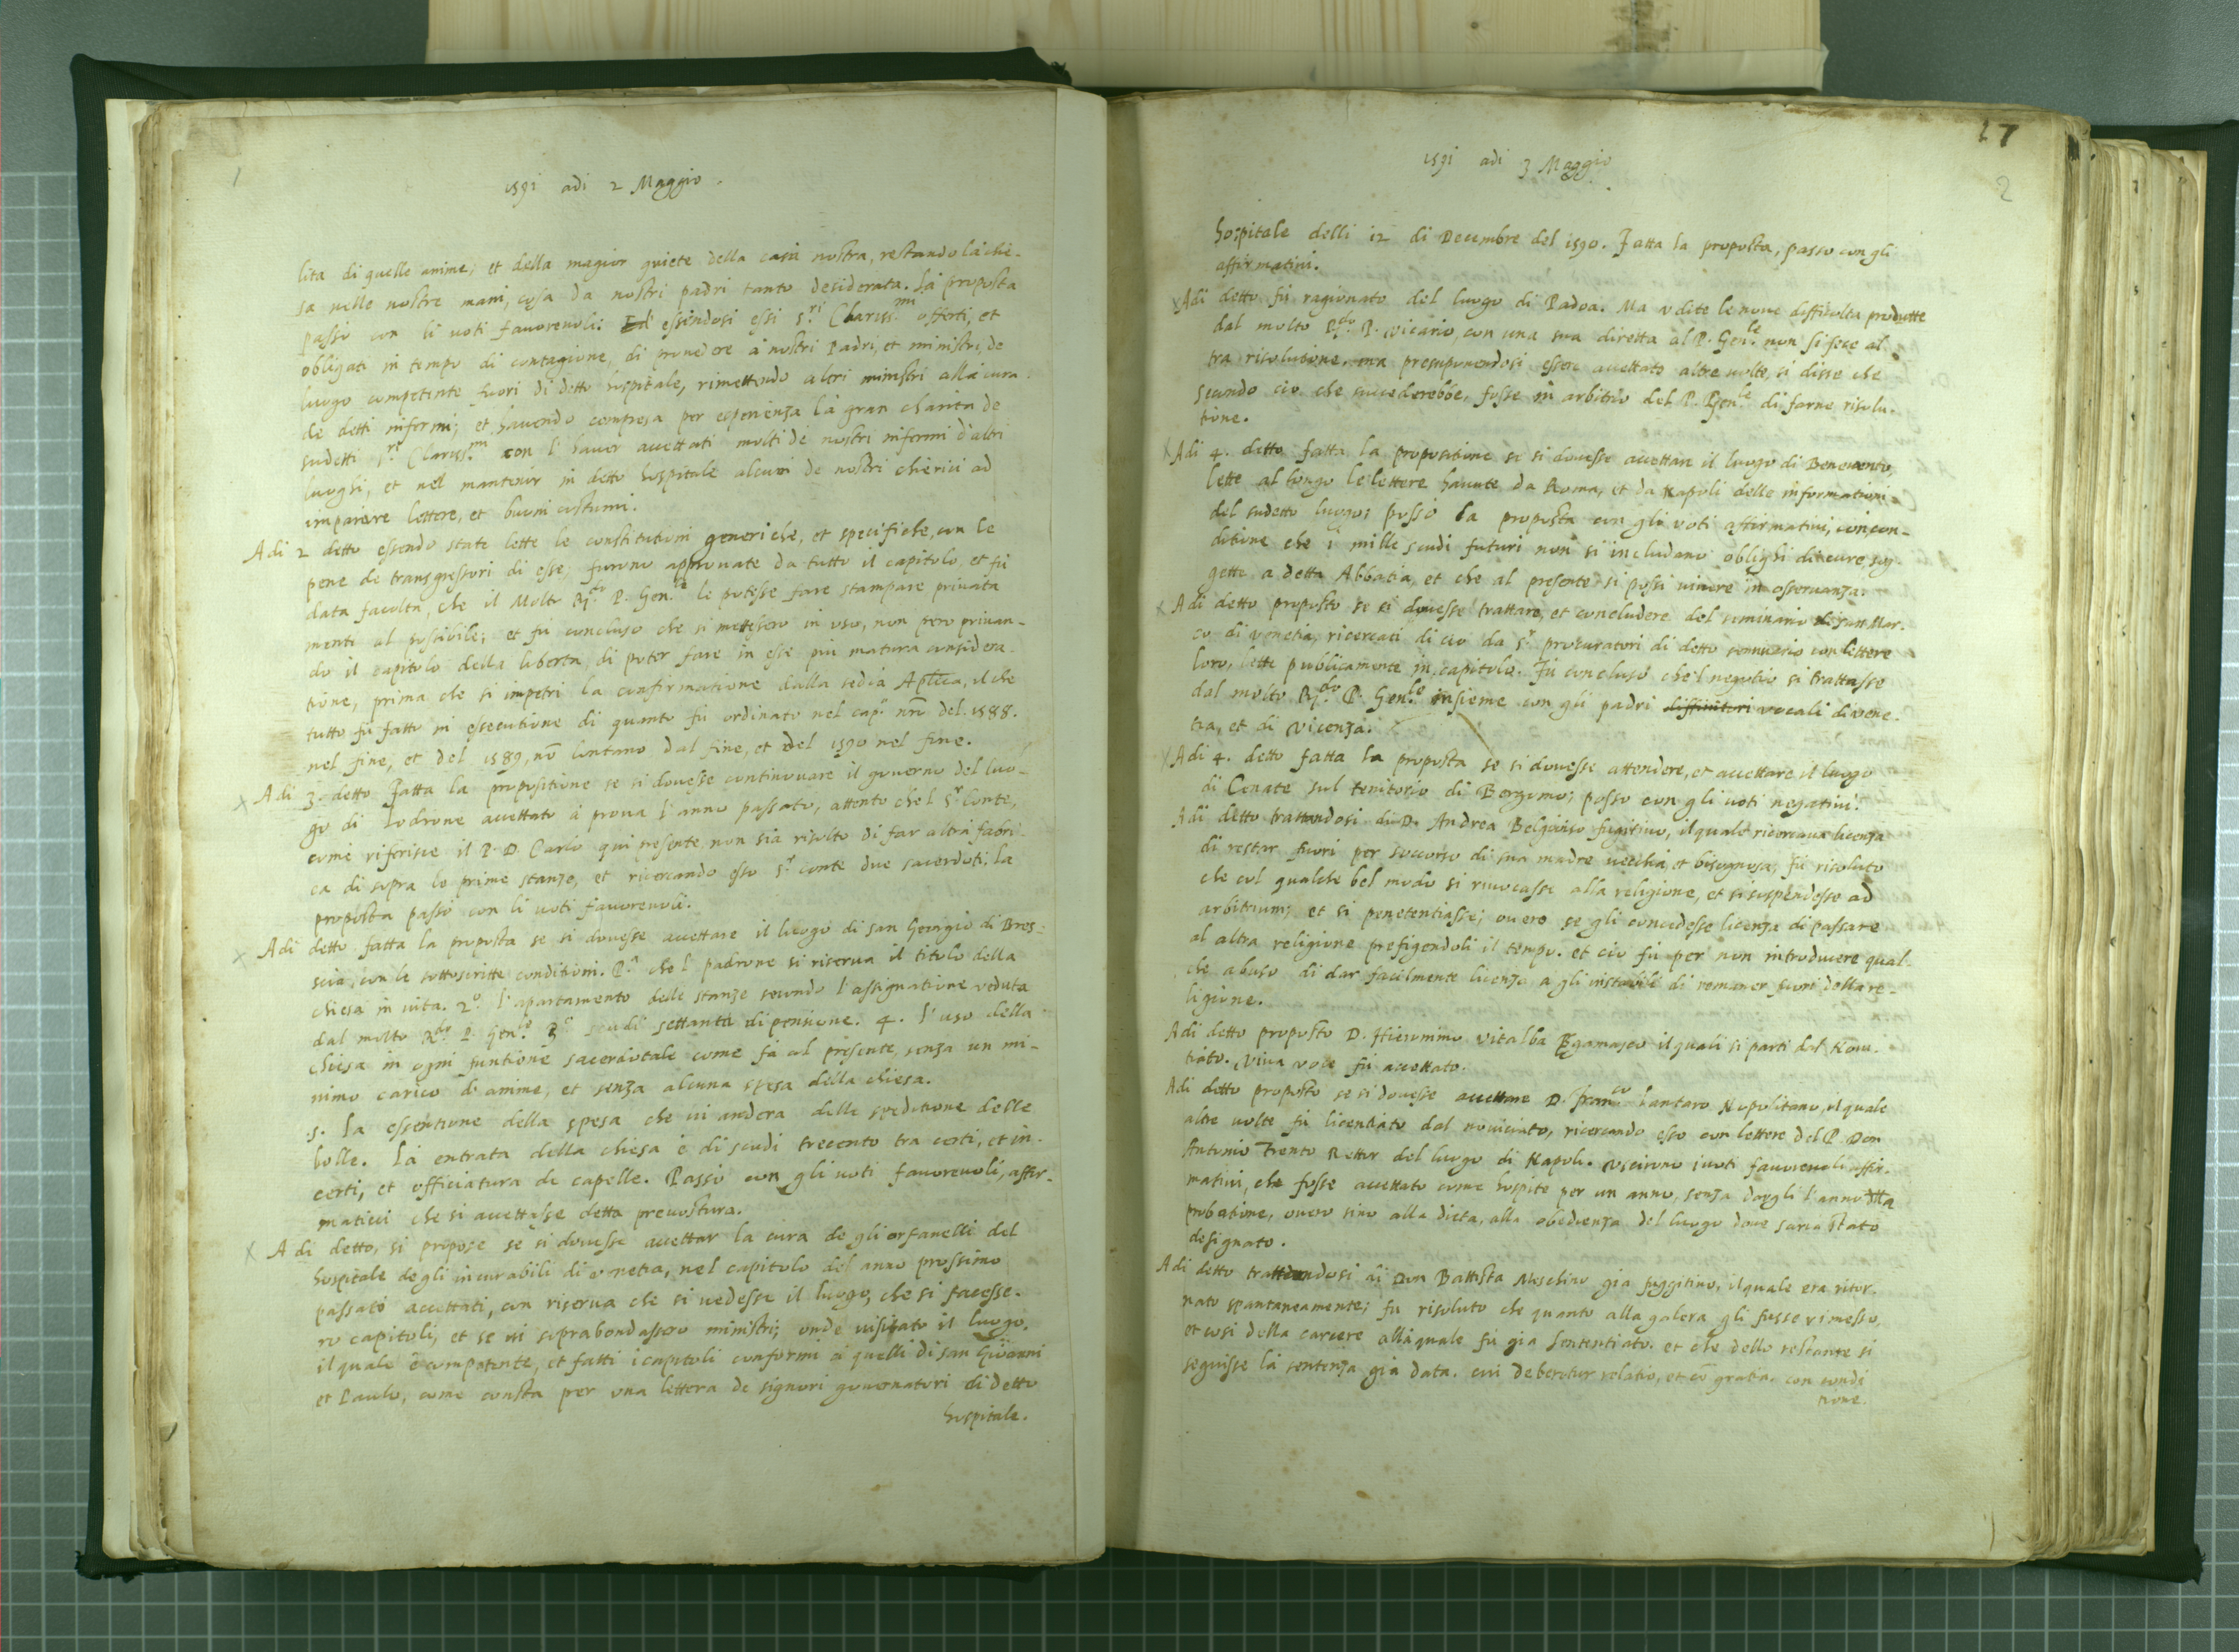 1
1591 adi 2 Maggio.
lita di quelle anime; et della magior quiete della casa nostra, restando la chie-
sa nelle nostre mani, cosa da nostri padri tanto desiderata. La proposta
passò con li uoti fauoreuoli. Et essendosi essi S.ri Clariss.mi offerti, et
obligati in tempo di contagione, di prouedere à nostri Padri, et ministri, de
luogo competente fuori di detto hospitale, rimettendo altri ministri alla cura
de detti infermi; et hauendo compresa per esperienza la gran charita de
sudetti S.ri Clariss.mi con l'hauer accettati molti de nostri infermi d'altri
luoghi, et nel mantenir in detto hospitale alcuni de nostri chierici ad
imparare lettere, et buoni costumi.
Adi 2 detto essendo state lette le constitutioni generiche, et specifiche, con le
pene de transgressori di esse, furono approuate da tutto il capitolo, et fù
data facolta, che il Molto R.do P. Gen.le le potesse fare stampare priuata
mente al possibile; et fù concluso che si mettessero in uso, non pero priuan-
do il capitolo della liberta di poter fare in esse piu matura considera-
tione, prima che si impetri la confirmatione dalla sedia Aplica, il che
tutto fù fatto in essecutione di quanto fù ordinato nel cap.o nro del 1588.
nel fine, et del 1589, nō lontano dal fine, et del 1590 nel fine.
X Adi 3. detto Fatta la propositione se si douesse continouare il gouerno del luo-
go di Lodrone accettato à proua l'anno passato, attento che'l S.r Conte,
come riferisce il P. D. Carlo qui presente, non sia risolto di far altra fabri-
ca di sopra le prime stanze, et ricercando esso S.r conte due sacerdoti: la
proposta passò con li uoti fauoreuoli.
X Adi detto fatta la proposta se si douesse accettare il luogo di san Georgio di Bres-
scia, con le sottoscritte conditioni. P.a che'l padrone si riserua il titolo della
chiesa in uita. 2.o l'apartamento delle stanze secondo l'assignatione veduta
dal molto R.do P. Gen.le 3.o scudi settanta di pensione. 4. l'uso della
chiesa in ogni funtione sacerdotale come fa al presente, senza un mi-
nimo carico d'anime, et senza alcuna spesa della chiesa.
5. La essentione della spesa che ui andera della speditione delle
bolle. La entrata della chiesa è di scudi trecento tra certi, et in-
certi, et officiatura de capelle. Passò con gli uoti fauoreuoli, affir-
matiui che si accettasse detta preuostura.
X Adi detto, si propose se si douesse accettar la cura de gli orfanelli del
hospitale degli incurabili di venetia, nel capitolo del anno prossimo
passato accettati, con riserua che si uedesse il luogo, che si facesse-
ro capitoli, et se ui soprabondassero ministri; onde uisitato il luogo,
il quale è competente, et fatti i capitoli conformi à quelli di san Giouanni
et Paulo, come consta per una lettera de signori gouernatori di detto
hospitale.
27
2
1591 adi 3 Maggio
hospitale delli 12 di Decembre del 1590. Fatta la proposta, passo con gli
affirmatiui.
X Adi detto fù ragionato del luogo di Padoa. Ma udite le noue difficulta produtte
dal molto R.do P. vicario, con una sua diretta al P. Gen.le non si fece al
tra risolutione. ma presuponendosi essere accettato altre uolte, si disse che
secondo cio che succederebbe, fosse in arbitrio del P. Gen.le di farne risolu-
tione.
X Adi 4. detto fatta la propositione se si douesse accettare il luogo di Beneuento,
lette al longo le lettere hauute da Roma, et da Napoli delle informationi
del sudetto luogo; passò la proposta con gli uoti affirmatiui, con con-
ditione che i mille scudi futuri non si includano oblighi di cure sog-
gette a detta Abbatia, et che al presente si possi uiuere in osseruanza.
X Adi detto proposto se si douesse trattare, et concludere del seminario di san Mar-
co di venetia, ricercati di cio da S.r procuratori di detto seminario con lettere
loro, lette publicamente in capitolo. Fù concluso che'l negotio si trattasse
dal molto R.do P. Gen.le insieme con gli padri diffinitori vocali di vene-
tia, et di vicenza.
X Adi 4. detto fatta la proposta se si douesse attendere, et accettare il luogo
di Cenate sul teritorio di Bergomo; passo con gli uoti negatiui.
Adi detto trattandosi di D. Andrea fugitiuo, il quale ricercaua licenza
di restar fuori per soccorso di sua madre uecchia, et bisognosa; fù risoluto
che col qualche bel modo si riuocasse alla religione, et si suspendesse ad
arbitrium; et si penetentiasse; ouero se gli concedesse licenza di passare
al altra religione prefigendoli il tempo. et cio fù per non introducere qual-
che abuso di dar facilmente licenza a gli instabili di romaner fuori della re-
ligione.
Adi detto proposto D. Hieronimo Vitalba Bgamasco il quali si parti dal Noui-
tiato. Viua voce fù accettato.
Adi detto proposto se si douesse accettare D. Fran.co Cantaro Napolitano, il quale
altre uolte fù licentiato dal nouiciato, ricercando esso con lettere del P. Don
Antonio Trento Rettor del luogo di Napoli. Uscirono i uoti fauoreuoli affir-
matiui, che fosse accettato come hospite per un anno, senza dargli l'anno della
probatione, ouero sino alla dieta, alla obedienza del luogo doue saria stato
designato.
Adi detto trattandosi di Don Battista Moschino gia fuggitiuo, il quale era ritor-
nato spontaneamente; fu risoluto che quanto alla galera gli fusse rimesso,
et cosi della carcere alla quale fù gia sententiato. et che dello restante si
seguisse la sentenza già data. cui deberetur relatio, et cū gratia. con condi
tione.